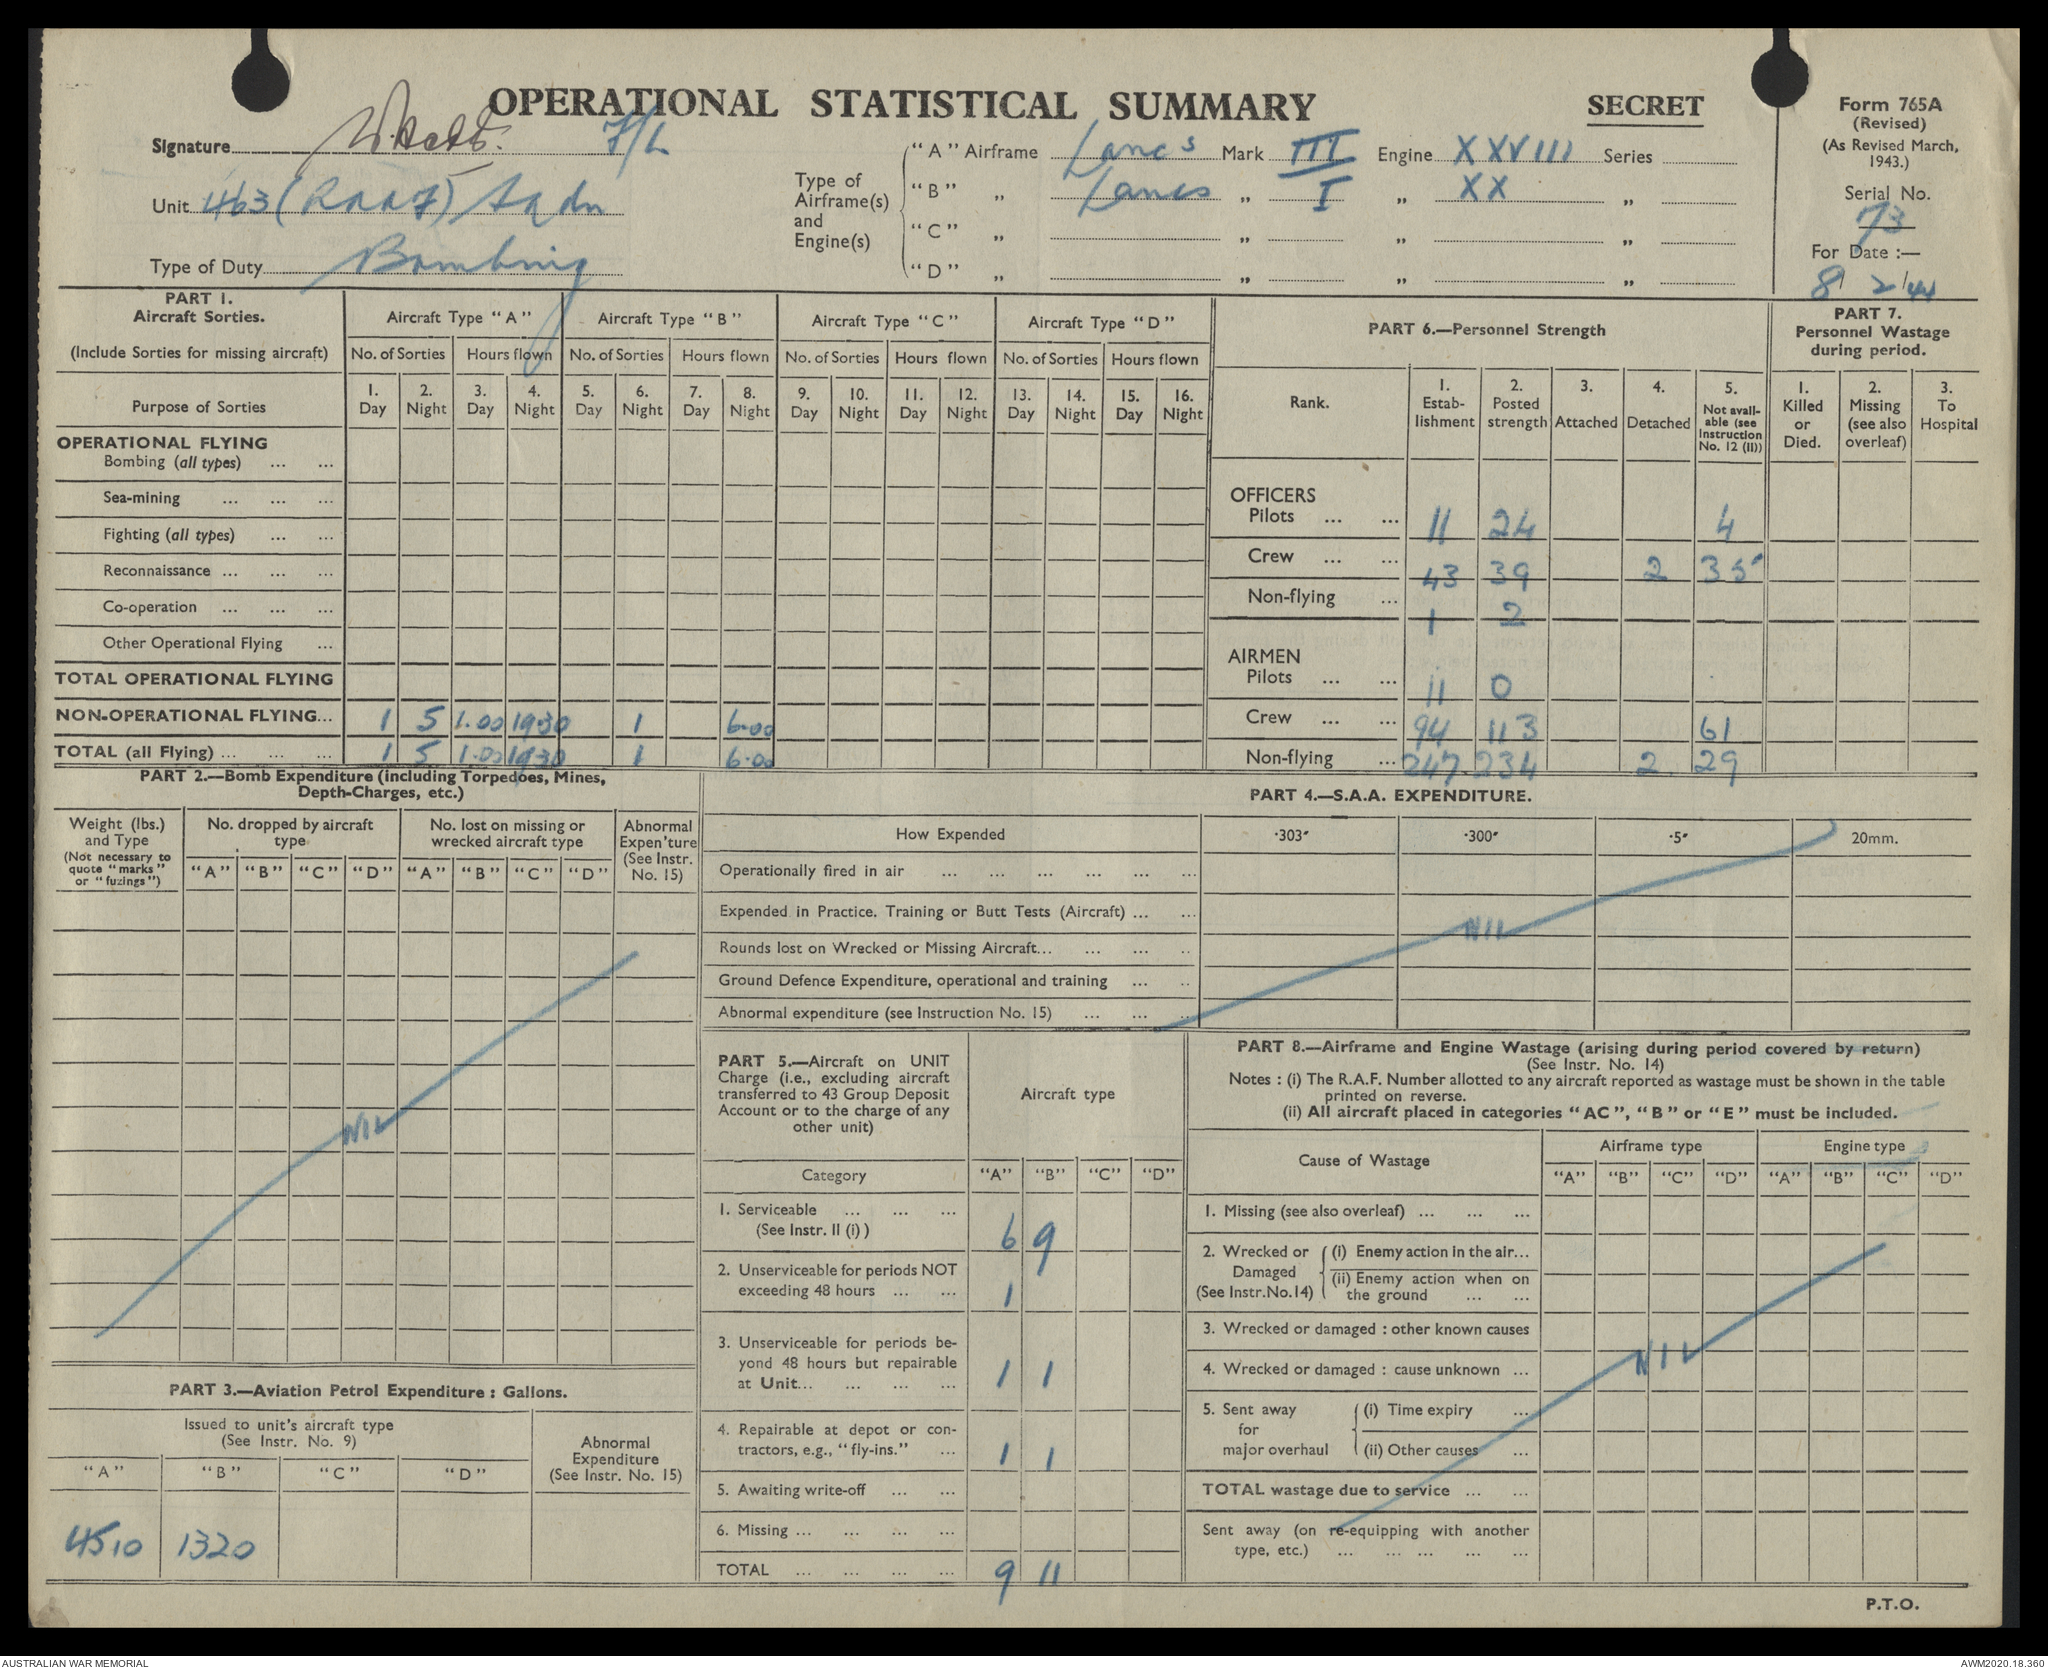 OPERATIONAL STATISTICAL SUMMARY
SECRET
Form 765A
(Revised)
(As Revised March, 1943.)
Serial No.
73
For Date :—
8/2/44
Signature F/L
Unit 463 (RAAF) Sqdn
Type of Duty Bombing
Type of Airframe(s) and Engine(s)
"A" Airframe Lancs Mark III Engine XXVIII Series
"B" „ Lancs „ I „ XX „
"C" „ „ „ „
"D" „ „ „ „
PART 1.
Aircraft Sorties.
(Include Sorties for missing aircraft)
Aircraft Type "A" Aircraft Type "B" Aircraft Type "C" Aircraft Type "D"
No. of Sorties Hours flown No. of Sorties Hours flown No. of Sorties Hours flown No. of Sorties Hours flown
Purpose of Sorties
1. Day 2. Night 3. Day 4. Night 5. Day 6. Night 7. Day 8. Night 9. Day 10. Night 11. Day 12. Night 13. Day 14. Night 15. Day 16. Night
OPERATIONAL FLYING
Bombing (all types) ... ...
Sea-mining ... ... ...
Fighting (all types) ... ...
Reconnaissance ... ... ...
Co-operation ... ... ...
Other Operational Flying ...
TOTAL OPERATIONAL FLYING
NON-OPERATIONAL FLYING... 1 5 1.00 1930 1 6.00
TOTAL (all Flying) ... ... ... 1 5 1.00 1930 1 6.00
PART 6.—Personnel Strength
Rank.
1. Estab-lishment
2. Posted strength
3. Attached
4. Detached
5. Not avail-able (see Instruction No. 12 (II))
OFFICERS
Pilots ... ... 11 24 4
Crew ... ... 43 39 2 35
Non-flying ... 1 2
AIRMEN
Pilots ... ... 11 0
Crew ... ... 94 113 61
Non-flying ... 247 234 2 29
PART 7.
Personnel Wastage during period.
1. Killed or Died.
2. Missing (see also overleaf)
3. To Hospital
PART 2.—Bomb Expenditure (including Torpedoes, Mines, Depth-Charges, etc.)
Weight (lbs.) and Type
(Not necessary to quote "marks" or "fuzings")
No. dropped by aircraft type
No. lost on missing or wrecked aircraft type
Abnormal Expen'ture (See Instr. No. 15)
"A" "B" "C" "D" "A" "B" "C" "D"
NIL
PART 3.—Aviation Petrol Expenditure : Gallons.
Issued to unit's aircraft type
(See Instr. No. 9)
Abnormal Expenditure
(See Instr. No. 15)
"A" "B" "C" "D"
4510 1320
PART 4.—S.A.A. EXPENDITURE.
How Expended ·303″ ·300″ ·5″ 20mm.
Operationally fired in air ... ... ... ... ... ...
Expended in Practice. Training or Butt Tests (Aircraft) ... ...
Rounds lost on Wrecked or Missing Aircraft... ... ... ..
Ground Defence Expenditure, operational and training ... ..
Abnormal expenditure (see Instruction No. 15) ... ... ..
NIL
PART 5.—Aircraft on UNIT
Charge (i.e., excluding aircraft
transferred to 43 Group Deposit
Account or to the charge of any
other unit)
Aircraft type
Category "A" "B" "C" "D"
1. Serviceable ... ... ...
(See Instr. II (i) ) 6 9
2. Unserviceable for periods NOT
exceeding 48 hours ... ... 1
3. Unserviceable for periods be-
yond 48 hours but repairable
at Unit... ... ... ... 1 1
4. Repairable at depot or con-
tractors, e.g., "fly-ins." ... 1 1
5. Awaiting write-off ... ...
6. Missing ... ... ... ...
TOTAL ... ... ... ... 9 11
PART 8.—Airframe and Engine Wastage (arising during period covered by return)
(See Instr. No. 14)
Notes : (i) The R.A.F. Number allotted to any aircraft reported as wastage must be shown in the table
printed on reverse.
(ii) All aircraft placed in categories "AC", "B" or "E" must be included.
Cause of Wastage
Airframe type Engine type
"A" "B" "C" "D" "A" "B" "C" "D"
1. Missing (see also overleaf) ... ... ...
2. Wrecked or Damaged (See Instr.No.14)
(i) Enemy action in the air...
(ii) Enemy action when on the ground ... ...
3. Wrecked or damaged : other known causes
4. Wrecked or damaged : cause unknown ...
5. Sent away for major overhaul
(i) Time expiry ...
(ii) Other causes ...
NIL
TOTAL wastage due to service ... ...
Sent away (on re-equipping with another
type, etc.) ... ... ... ... ...
P.T.O.
AUSTRALIAN WAR MEMORIAL
AWM2020.18.360